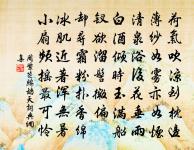 荷氣吹涼到枕邊
薄紗如霧亦如煙
清泉浴後花垂雨
白酒傾時玉滿船
釵欲溜髻微偏
却尋霜粉撲香綿
冰肌近著渾無暑
小扇頻搖最可憐
周紫芝
集